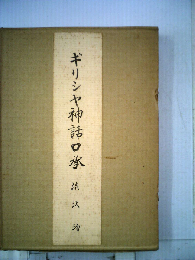 ギリシャ神話口承